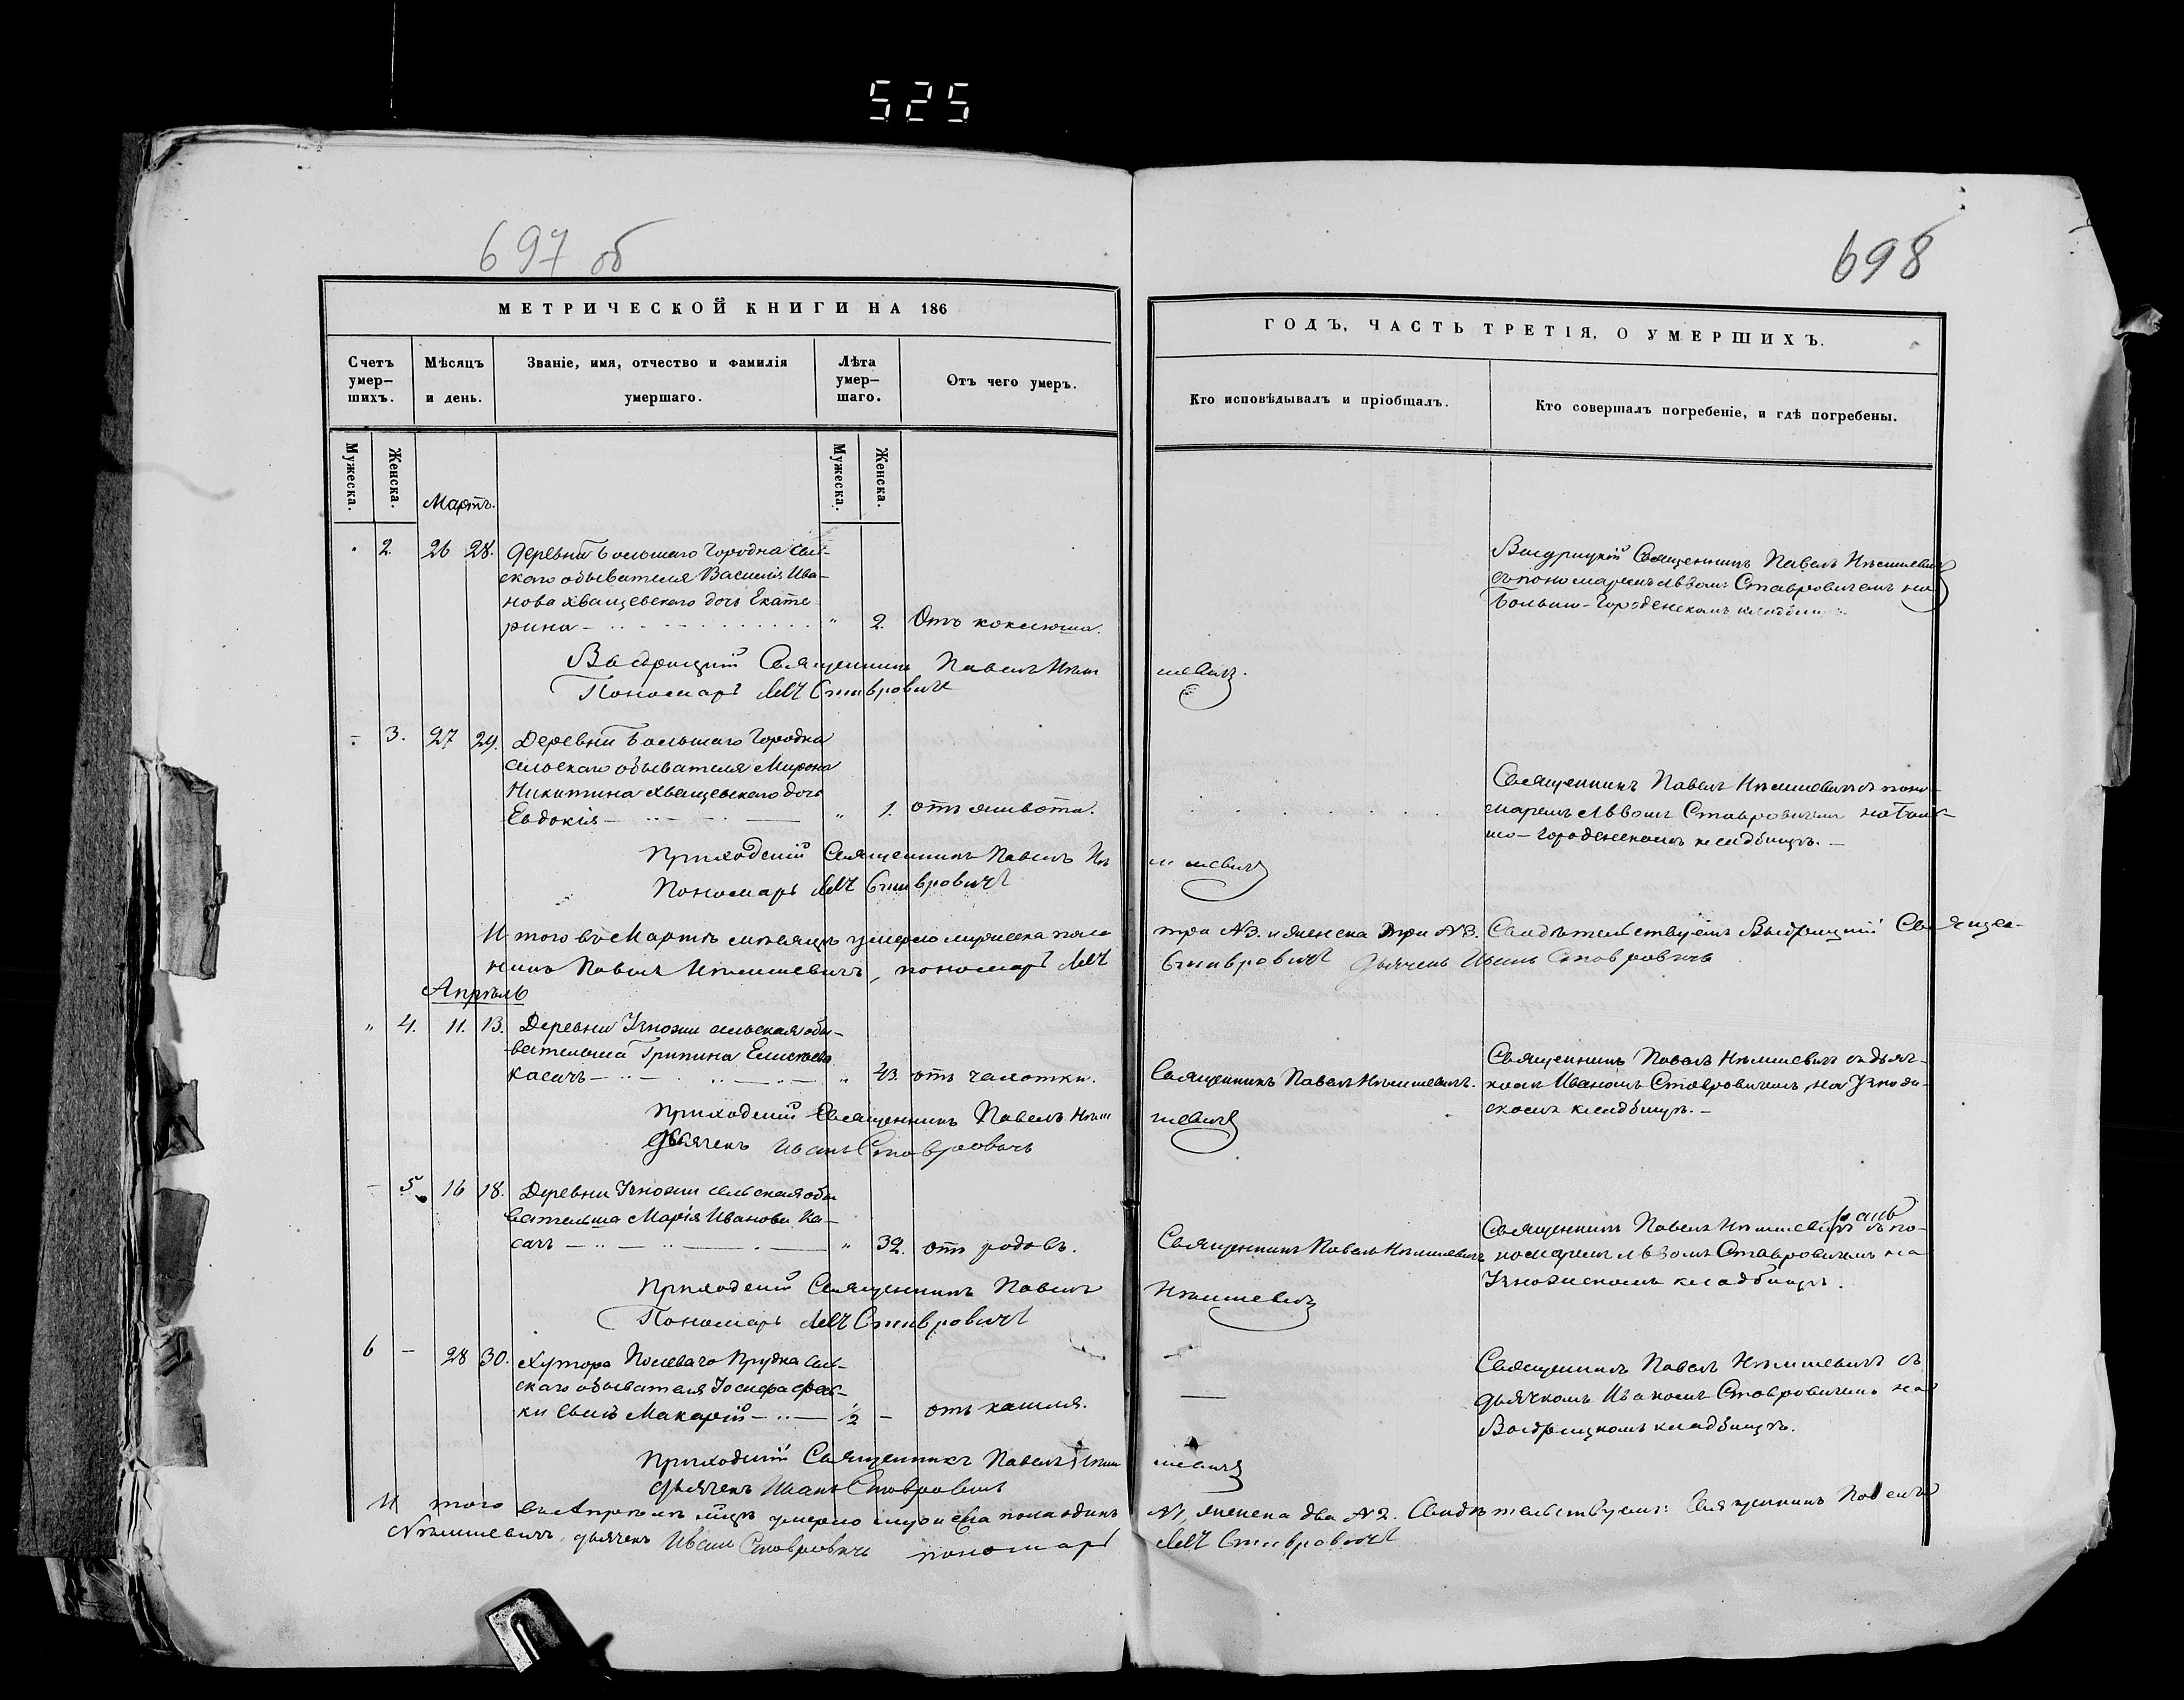 525
697 об
698
МЕТРИЧЕСКОЙ КНИГИ НА 186
ГОДЪ, ЧАСТЬ ТРЕТІЯ, О УМЕРШИХЪ.
Счетъ умер-шихъ.
Мѣсяцъ и день.
Званіе, имя, отчество и фамилія умершаго.
Лѣта умер-шаго.
Отъ чего умеръ.
Кто исповѣдывалъ и пріобщалъ.
Кто совершалъ погребеніе, и гдѣ погребены.
Мужеска.
Женска.
Мужеска.
Женска.
Мартъ.
2. 26 28. Деревни Большаго Городна сель-
скаго обывателя Василія Ива-
нова Хващевскаго дочь Екате-
рина " 2. Отъ коклюша.
Выдрицкій Священникъ Павелъ
съ пономаремъ Львомъ Ставровичемъ на
Больше-Городненскомъ кладбищѣ.
Выдрицкій Священникъ Павелъ
Пономарь Левъ Ставровичъ
3. 27 29. Деревни Большаго Городна
сельскаго обывателя Мирона
Никитина Хващевскаго дочь
Евдокія " 1. отъ живота.
Священникъ Павелъ с поно-
маремъ Львомъ Ставровичемъ на Боль-
ше-Городненскомъ кладбищѣ.
Приходскій Священникъ Павелъ
Пономарь Левъ Ставровичъ
Итого въ Мартѣ мѣсяцѣ умерло мужеска пола три №3. и женска три №3. Свидѣтельствуемъ Выдрицкій Священ-
никъ Павелъ пономарь Левъ Ставровичъ дьячекъ Иванъ Ставровичъ
Апрѣль
" 4. 11. 13. Деревни сельская обы-
вательша Грипина
Касачъ " 43. отъ чахотки.
Священникъ Павелъ
Священникъ Павелъ съ дьяч-
комъ Иваномъ Ставровичемъ, на
скомъ кладбищѣ.
Приходскій Священникъ Павелъ
Дьячекъ Иванъ Ставровичъ
5. 16 18. Деревни сельская обы-
вательша Марія Иванова Ка-
сачъ " 32. отъ родовъ.
Священникъ Павелъ
Священникъ Павелъ съ по-
номаремъ Львомъ Ставровичемъ на
кладбищѣ.
Приходскій Священникъ Павелъ
Пономарь Левъ Ставровичъ
6 - 28 30. Хутора Полеваго Прудка сель-
скаго обывателя Іосифа
сынъ Макарій ½ - отъ кашля.
Священникъ Павелъ съ
дьячкомъ Иваномъ Ставровичемъ на
Выдрицкомъ кладбищѣ.
Приходскій Священникъ Павелъ
Дьячекъ Иванъ Ставровичъ
Итого въ Апрѣлѣ мѣсяцѣ умерло мужеска пола одинъ №1, женска два №2. Свидѣтельствуемъ: Священникъ Павелъ
дьячекъ Иванъ Ставровичъ пономарь Левъ Ставровичъ